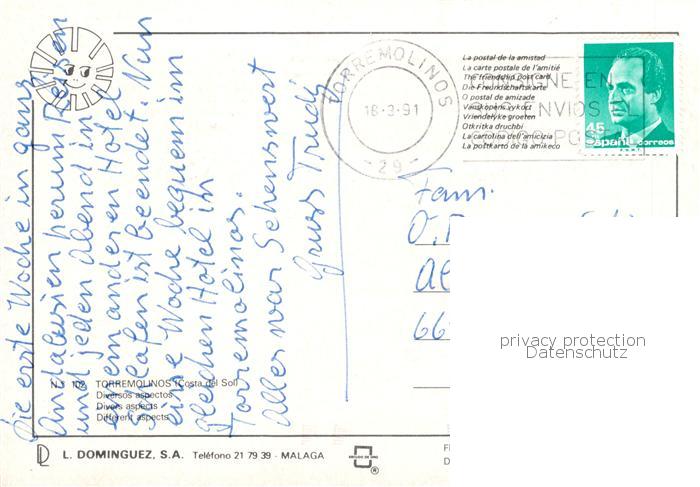 Die erste Woche in ganz
Andalusien herum Reisen
und jeden Abend in
einem anderen Hotel
Schlafen ist beendet. Nun
eine Woche bequem im
gleichen Hotel in
Torremolinos.
Alles war Sehenswert
Gruss Trudy
TORREMOLINOS
18-3-91
-29-
La postal de la amistad
La carte postale de l'amitié
The friendship post card
Die Freundschaftskarte
O postal de amizade
Vänskapens vykort
Vriendelyke groeten
Otkritka druchbi
La cartolina dell'amicizia
La postkarto de la amikeco
CONSIGNE EN
ENVIOS EL
POSTAL
45
España correos
Fam.
O.
66
privacy protection
Datenschutz
N.º 102 TORREMOLINOS (Costa del Sol)
Diversos aspectos
Divers aspects
Different aspects
L. DOMINGUEZ, S.A. Teléfono 21 79 39 - MALAGA
®